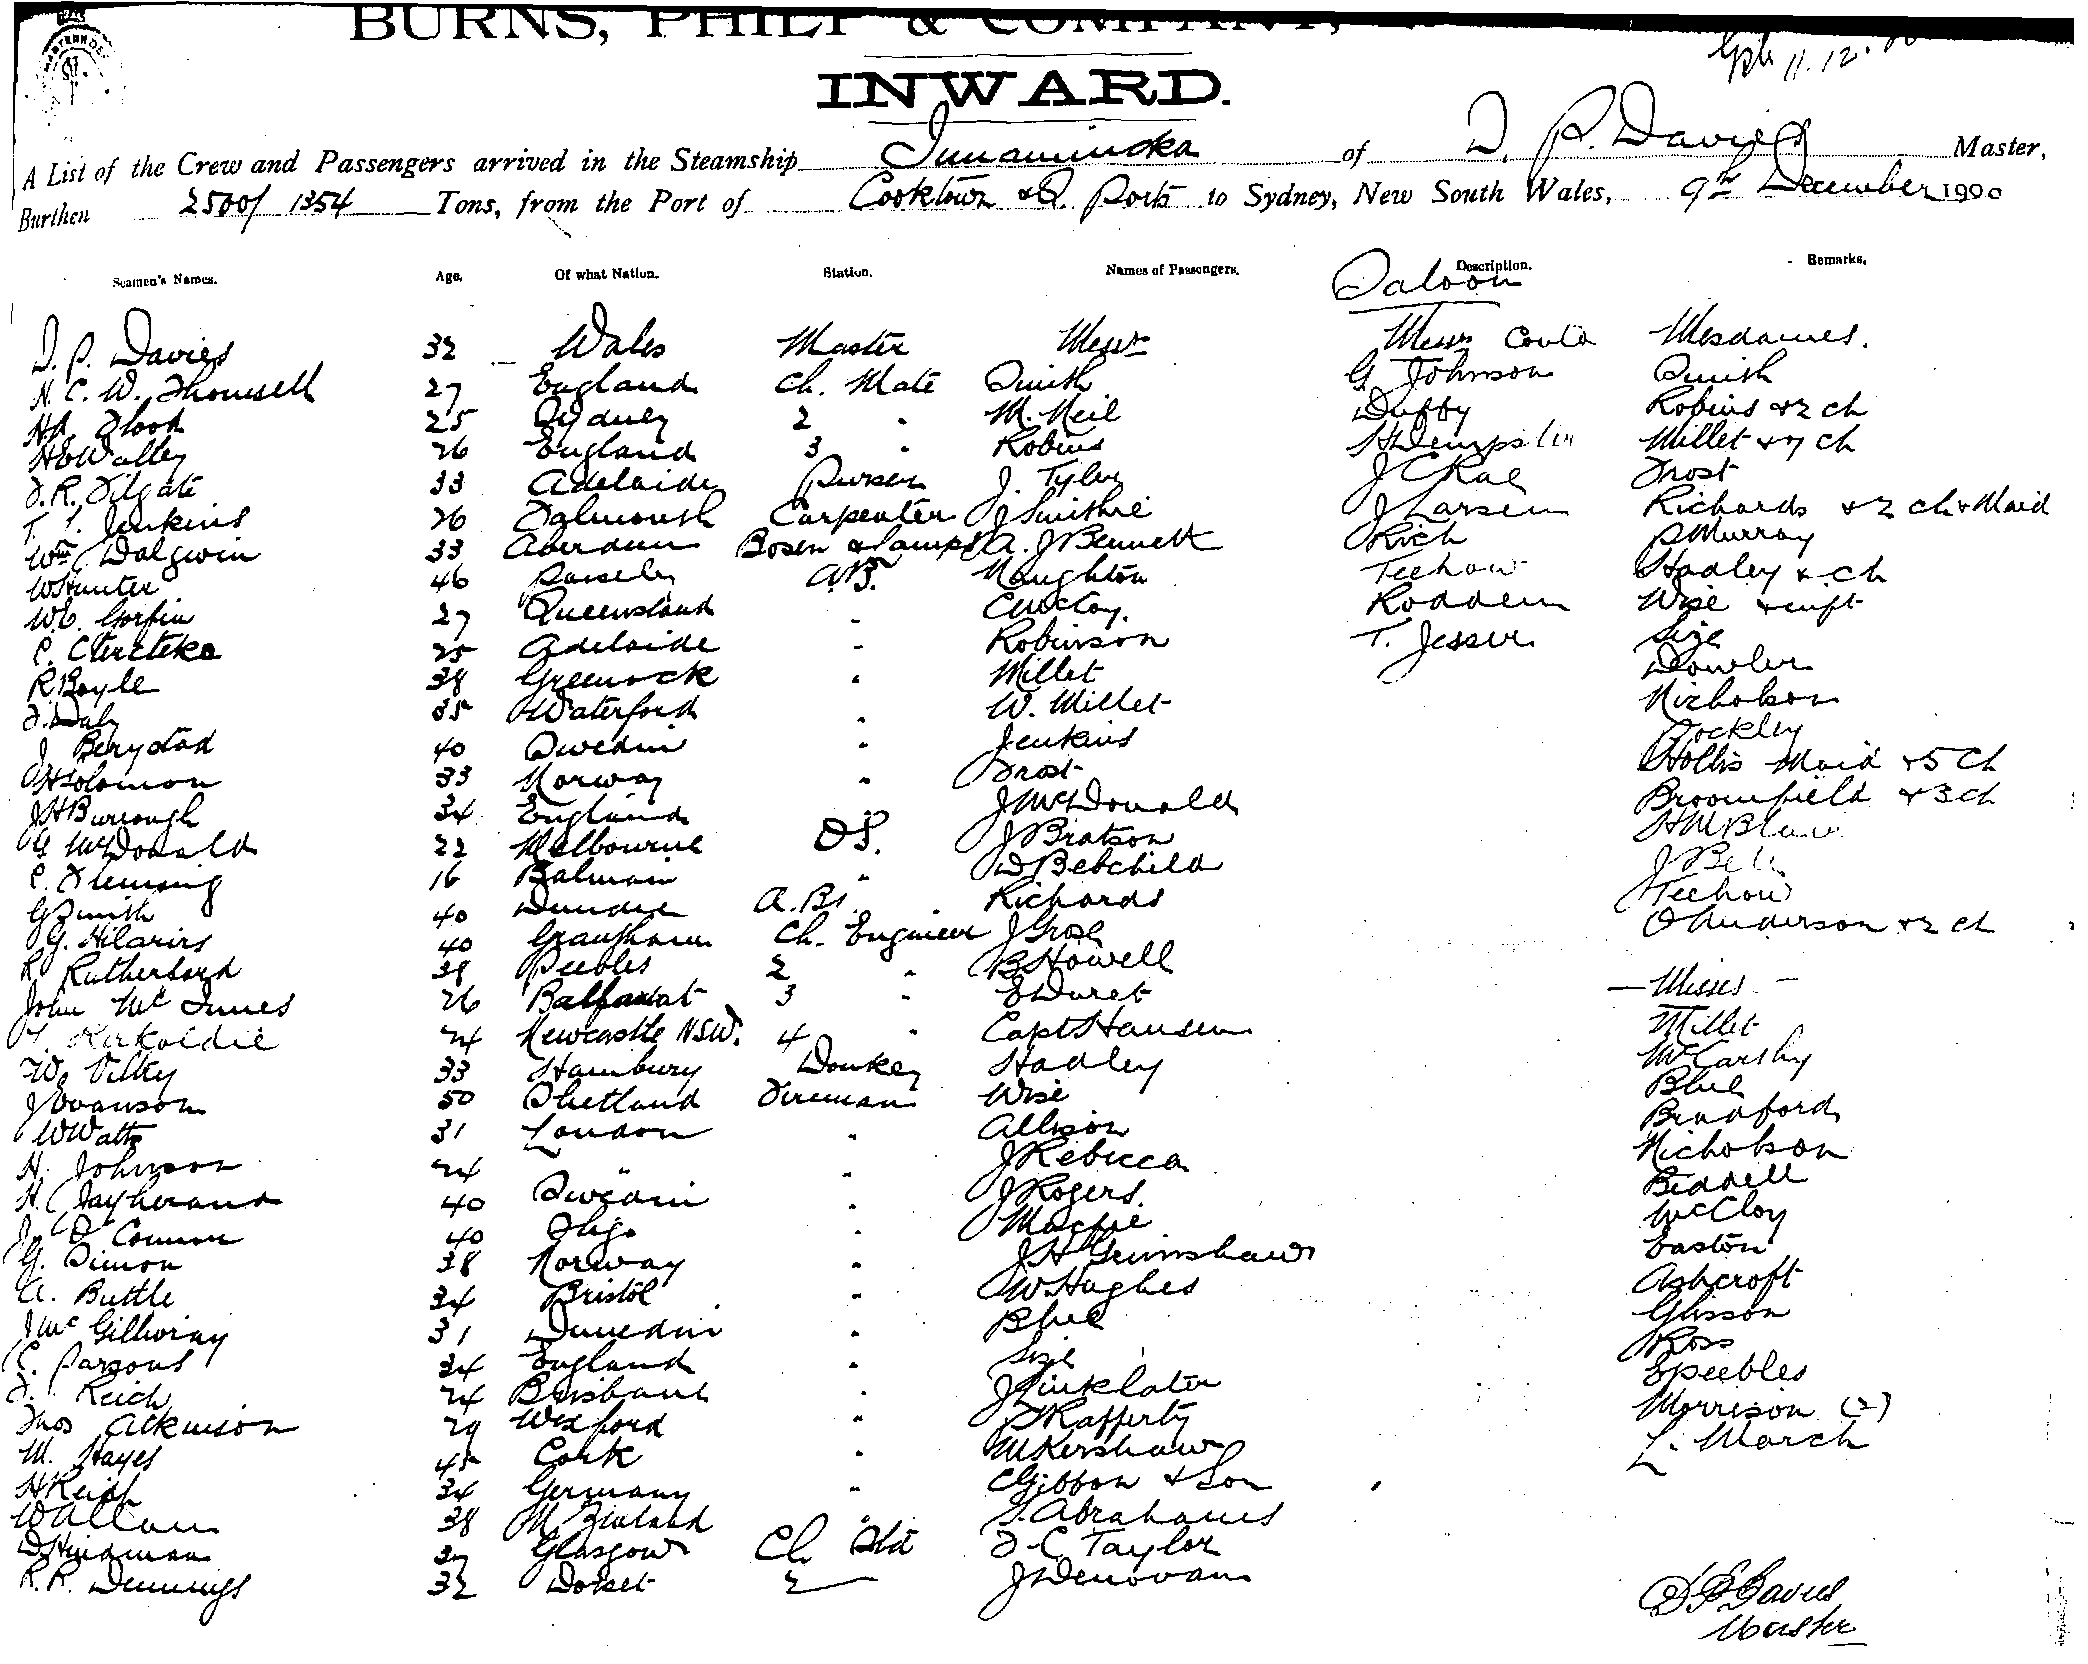 BURNS, PHILP & COMPANY,
11.12.00
INWARD.
A List of the Crew and Passengers arrived in the Steamship Innamincka of D. P. Davies Master,
Burthen 2500/1354 Tons, from the Port of Cooktown & Q. Ports to Sydney, New South Wales, 9th December 1900
Seamen's Names. Age. Of what Nation. Station. Names of Passengers. Description. Remarks.
Saloon
D. P. Davies 32 Wales Master Messrs Messrs Contd Mesdames.
H. C. W. Thomsett 27 England Ch. Mate Smith G Johnson Smith
Flook 25 Sydney 2 " M. Neil Duffy Robins & 2 ch
H E Walley 26 England 3 " Robins H Dempster Millet & 7 ch
F. R. Filgate 33 Adelaide Purser J. Tyler J C Rae Frost
T. T. Jenkins 26 Falmouth Carpenter J Smithie J Larsen Richards & 2 ch & Maid
Wm Dalgwin 33 Aberdeen Bosen & Lamps A. J Bennett Rich P Murray
W Hunter 46 Paisely A.B. Naughton Teehow Hadley & Ch
W. C. Gorfin 27 Queensland " Roddem Wise & inft
C. 25 Adelaide " Robinson T. Jesser Size
R Boyle 38 Greenock " Millet Dowler
F. Daly 35 Waterford " W. Millet Nicholson
J Berystad 40 Sweden " Jenkins Hockley
H Solomon 33 Norway " Frost Hollis Maid & 5 Ch
J H Burrough 34 England J McDonald Broomfield & 3 ch
G McDonald 22 Melbourne O S. J Bratson
C. Fleming 16 Balmain " D Bebchild J Bell
G Smith 40 Dundee A. Bs. Richards Teehow
G. Hilarirs 40 Grantham Ch. Engineer J Grose O Anderson & 2 ch
R Rutherford 38 Peebles 2 " B Howell — Misses —
John McInnes 26 Ballarat 3 " E Duret Millet
Kirkaldie 24 Newcastle NSW. 4 " Capt Hansen McCarthy
W. Vilky 33 Hamburg Donkey Hadley Blue
J Swanson 50 Shetland Fireman Wise Bradford
W Watts 31 London " Allison Nicholson
H. Johnson 24 " " J Rebecca Biddell
H. 40 Sweden " J Rogers. McCloy
J. O Connor 40 Sligo " Mackie Easton
G. Simon 38 Norway " J H Grimshaw Ashcroft
A. Buttle 34 Bristol " W Hughes Glasson
J McGillivray 31 Dunedin " Blue Ross
C. Parsons 34 England " Size E Peebles
F. Reich 24 Brisbane " J Sinklater Morrison (2)
Thos Atkinson 29 Wexford " P Rafferty L. March
M. Hayes 45 Cork " M Kershaw
H Reich 34 Germany " C Gibbon & Son
W Allan 38 N Zealand " S. Abrahams
D Hindman 37 Glasgow Ch Std F. C Taylor
R. R. Dennings 32 Dorset 2 J Denovan
D P Davies
Master